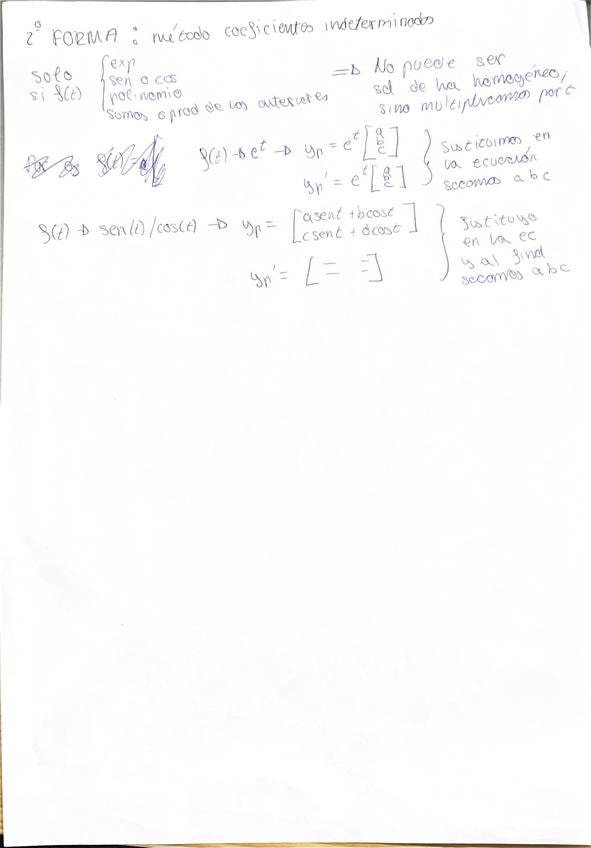 2º FORMA: método coeficientes indeterminados
solo si f(t) { exp
sen o cos
polinomio
sumas o prod de los anteriores
=> No puede ser
sol de ha homogénea,
sino multiplicamos por t
f(t) → e^t → yp = e^t [a b c]
yp' = e^t [a b c]
} sustituimos en
la ecuación
sacamos a b c
f(t) → sen(t)/cos(t) → yp = [a sent + b cost
c sent + d cost]
yp' = [= =]
} sustituyo
en la ec
y al final
sacamos a b c